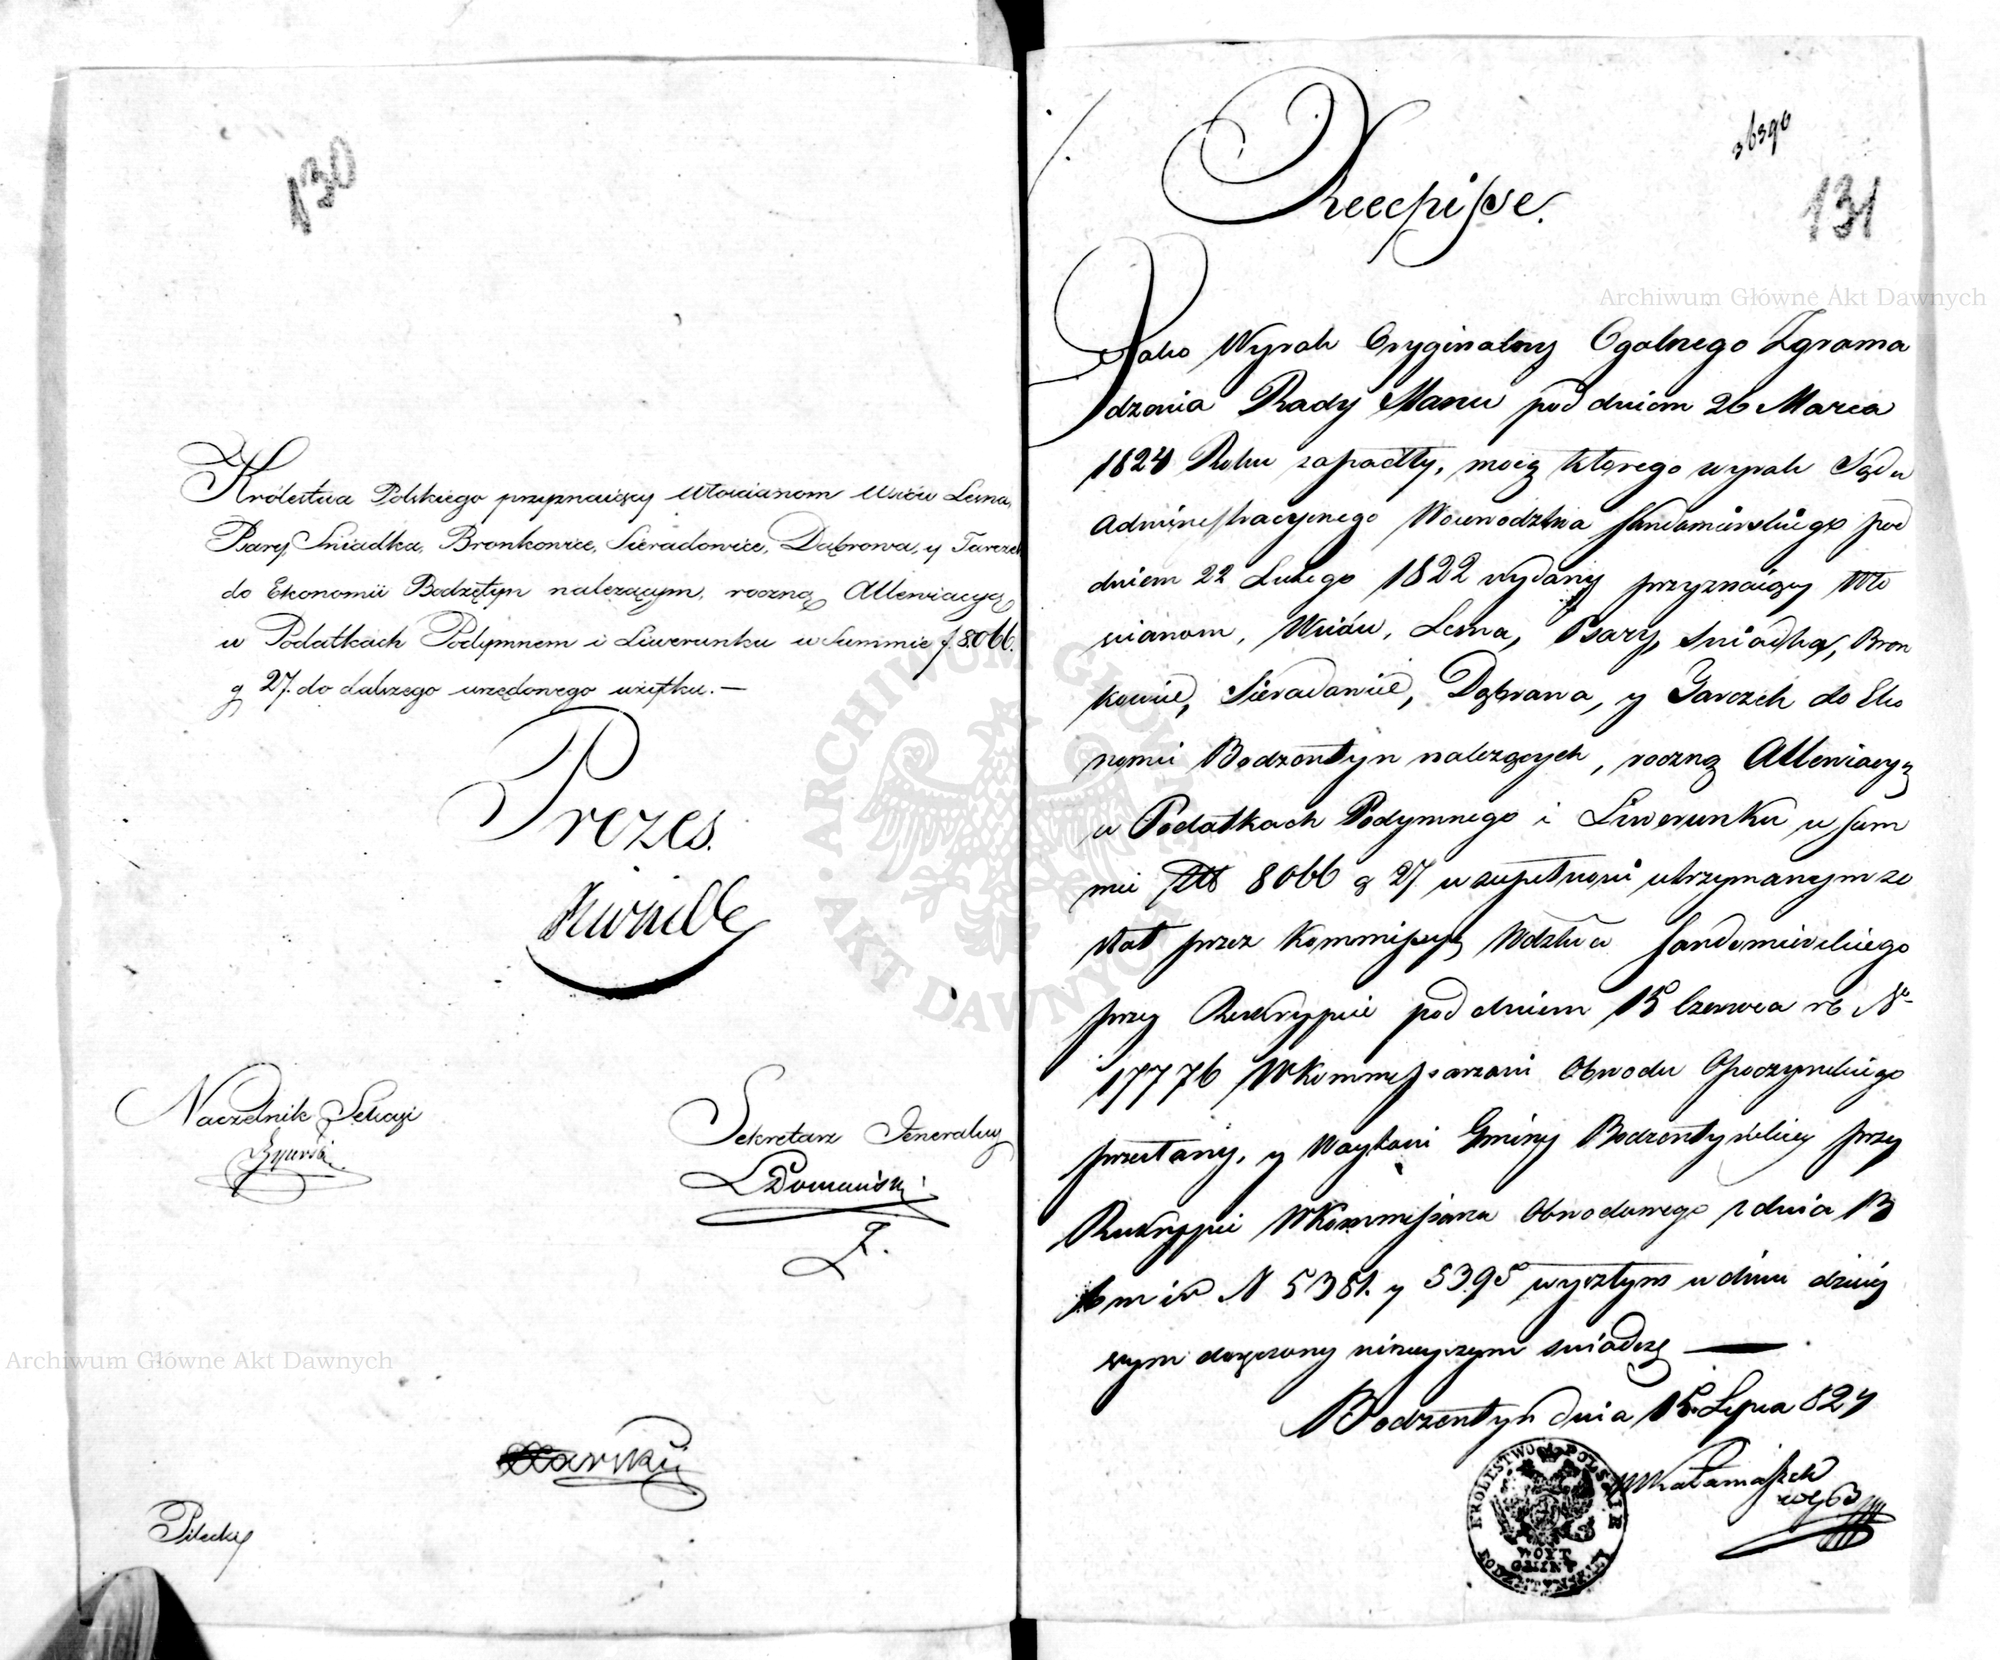 130
Królestwa Polskiego przyznaiący Włościanom Wsiów Leśna,
Psary, Śniadka, Bronkowice, Sieradowice, Dąbrowa, y Tarczek
do Ekonomii Bodzętyn należącym, roczną Allewiacyą
w Podatkach Podymnem i Liwerunku w Summie f. 8066.
g 27. do dalszego urzędowego użytku. —
Prezes.
Naczelnik Sekcyi
Sekretarz Jeneralny
LDomański
Pilecki
36390
131
Recepisse.
Jako Wyrok Oryginalny Ogolnego Zgroma
dzenia Rady Stanu pod dniem 26 Marca
1824 Roku zapadły, mocą którego wyrok Sądu
Administracyinego Woiewodztwa Sandomirskiego pod
dniem 22 Lutego 1822 wydany przyznaiący Wło
scianom, Wsiów, Lesna, Psary, Sniadka, Bron
kowice, Sieradowice, Dąbrowa, y Tarczek do Eko
nomii Bodzentyn należących, roczną Allewiacyą
w Podatkach Podymnego i Liwerunku w Sum
mie Złł 8066 g 27 w zupełności utrzymanym zo
stał przez Kommissyą Wdztwa Sandomirskiego
przy Reskrypcie pod dniem 15 Czerwca rb No
17776 WKommissarzowi Obwodu Opoczynskiego
przesłany, y Woytowi Gminy Bodzentyńskiey przy
Reskrypcie WKommissarza Obwodowego z dnia 13
b m i r N 5381. y 5395 wyszłym w dniu dzisiey
szym doręczony ninieyszym swiadczę —
Bodzentyn dnia 15. Lipca 824
KROLESTWO POLSKIE
WOYT GMINY
Archiwum Główne Akt Dawnych
Archiwum Główne Akt Dawnych
ARCHIWUM GŁÓWNE · AKT DAWNYCH